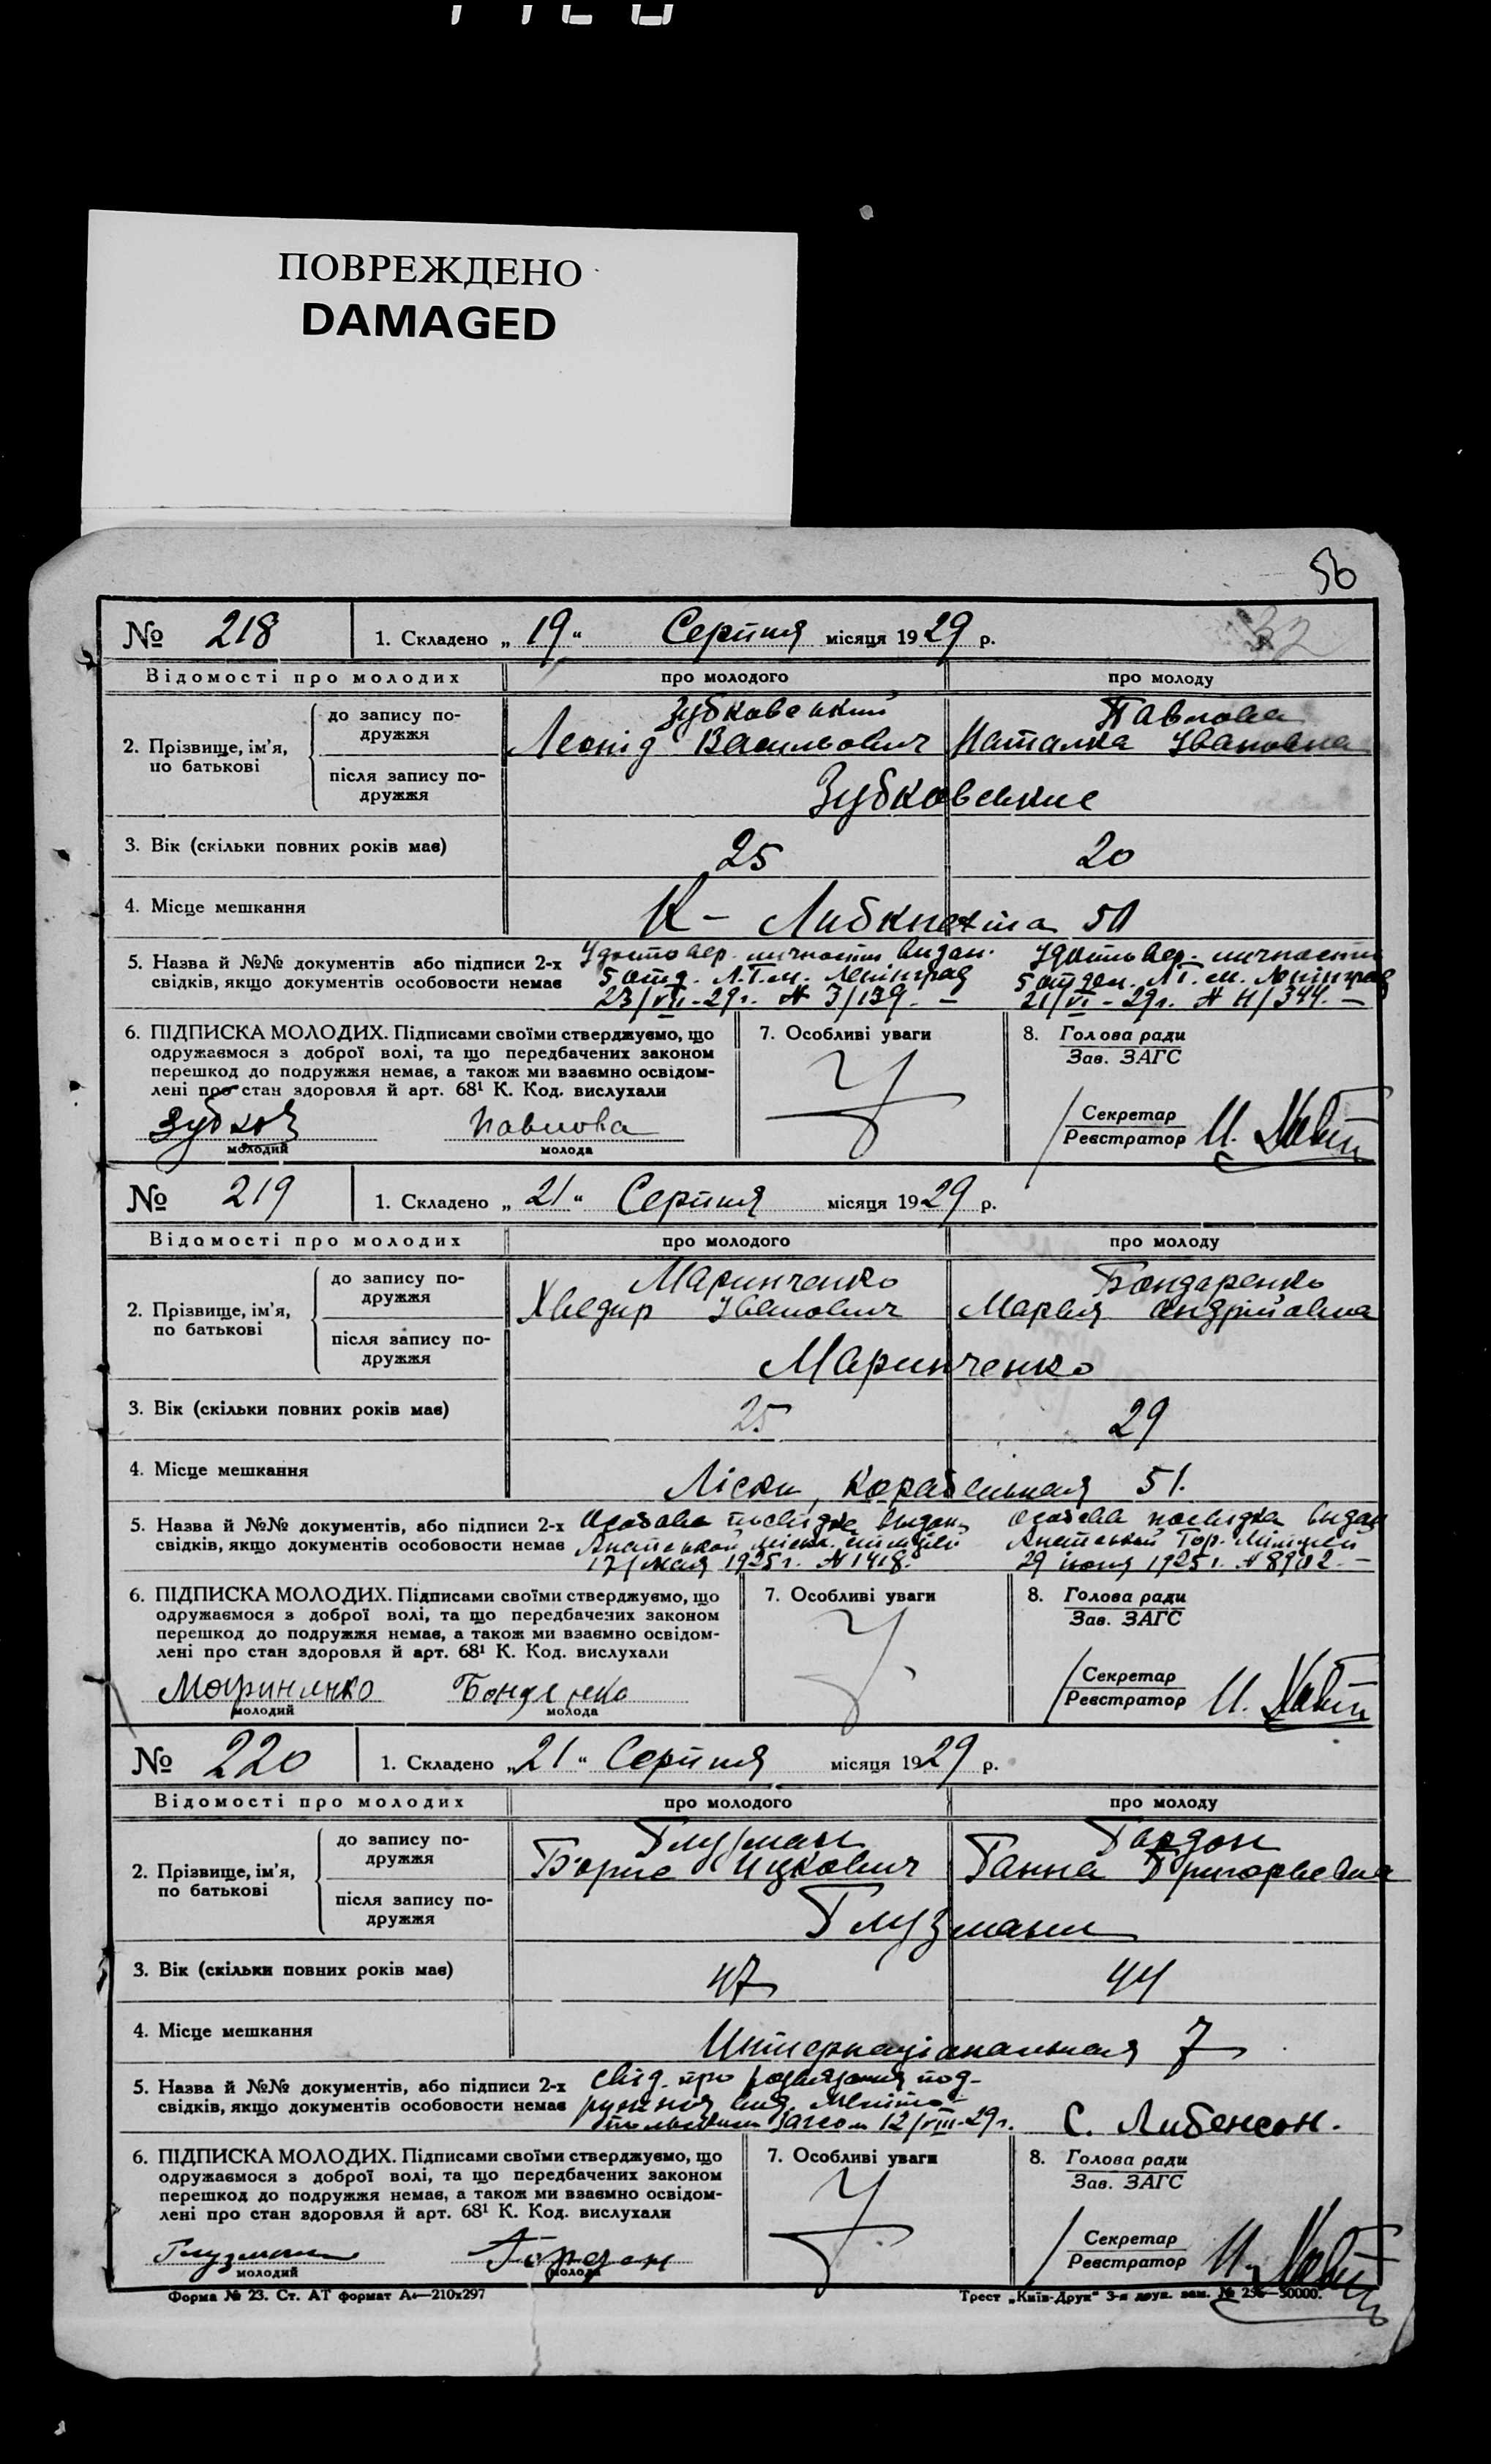 ПОВРЕЖДЕНО
DAMAGED
56
32
№ 218 1. Складено „19“ Серпня місяця 1929 р.
Відомості про молодих про молодого про молоду
2. Прізвище, ім’я, по батькові
до запису подружжя
Зубковський Павлова
Леонід Васильович Наталка Івановна
після запису подружжя
Зубковські
3. Вік (скільки повних років має) 25 20
4. Місце мешкання К- Либкнехта 51
5. Назва й №№ документів або підписи 2-х Удостовер. личности видан. Удостовер. личности
свідків, якщо документів особовости немає 5 отд. Л.Г.м. Ленінград 5 отдел. Л.Г.м. Ленінград
23/VII-29г. № 3/139. – 21/VI-29г. № 11/344. –
6. ПІДПИСКА МОЛОДИХ. Підписами своїми стверджуємо, що 7. Особливі уваги 8. Голова ради
одружаємося з доброї волі, та що передбачених законом Зав. ЗАГС
перешкод до подружжя немає, а також ми взаємно освідом-
лені про стан здоровля й арт. 68¹ К. Код. вислухали
Секретар
Зубков Павлова Реєстратор
молодий молода
№ 219 1. Складено „21“ Серпня місяця 1929 р.
Відомості про молодих про молодого про молоду
2. Прізвище, ім’я, по батькові
до запису подружжя
Маринченко Бондаренко
Хведир Іванович Мария Андріївна
після запису подружжя
Маринченко
3. Вік (скільки повних років має) 25 29
4. Місце мешкання Ліски, Корабельная 51.
5. Назва й №№ документів, або підписи 2-х Особова посвідка видан. Особова посвідка видан
свідків, якщо документів особовости немає міськ. міліцією Гор. Міліцеи
17/мая 1925г. №1418. 29 июня 1925г. №8902. –
6. ПІДПИСКА МОЛОДИХ. Підписами своїми стверджуємо, що 7. Особливі уваги 8. Голова ради
одружаємося з доброї волі, та що передбачених законом Зав. ЗАГС
перешкод до подружжя немає, а також ми взаємно освідом-
лені про стан здоровля й арт. 68¹ К. Код. вислухали
Секретар
Мариненко Реєстратор
молодий молода
№ 220 1. Складено „21“ Серпня місяця 1929 р.
Відомості про молодих про молодого про молоду
2. Прізвище, ім’я, по батькові
до запису подружжя
Глузман Гордон
Борис Ицкович Ганна Григорьевна
після запису подружжя
Глузман
3. Вік (скільки повних років має) 47 44
4. Місце мешкання Интернаціональная 7
5. Назва й №№ документів, або підписи 2-х Свід. про розвязання под-
свідків, якщо документів особовости немає ружжя вид. Меліто-
польским Загсом 12/VIII-29г. С. Либенсон.
6. ПІДПИСКА МОЛОДИХ. Підписами своїми стверджуємо, що 7. Особливі уваги 8. Голова ради
одружаємося з доброї волі, та що передбачених законом Зав. ЗАГС
перешкод до подружжя немає, а також ми взаємно освідом-
лені про стан здоровля й арт. 68¹ К. Код. вислухали
Секретар
Глузман Гордон Реєстратор
молодий молода
Форма № 23. Ст. АТ формат А₄—210х297 Трест „Київ-Друк“ 3-я друк. зам. № 256—50000.